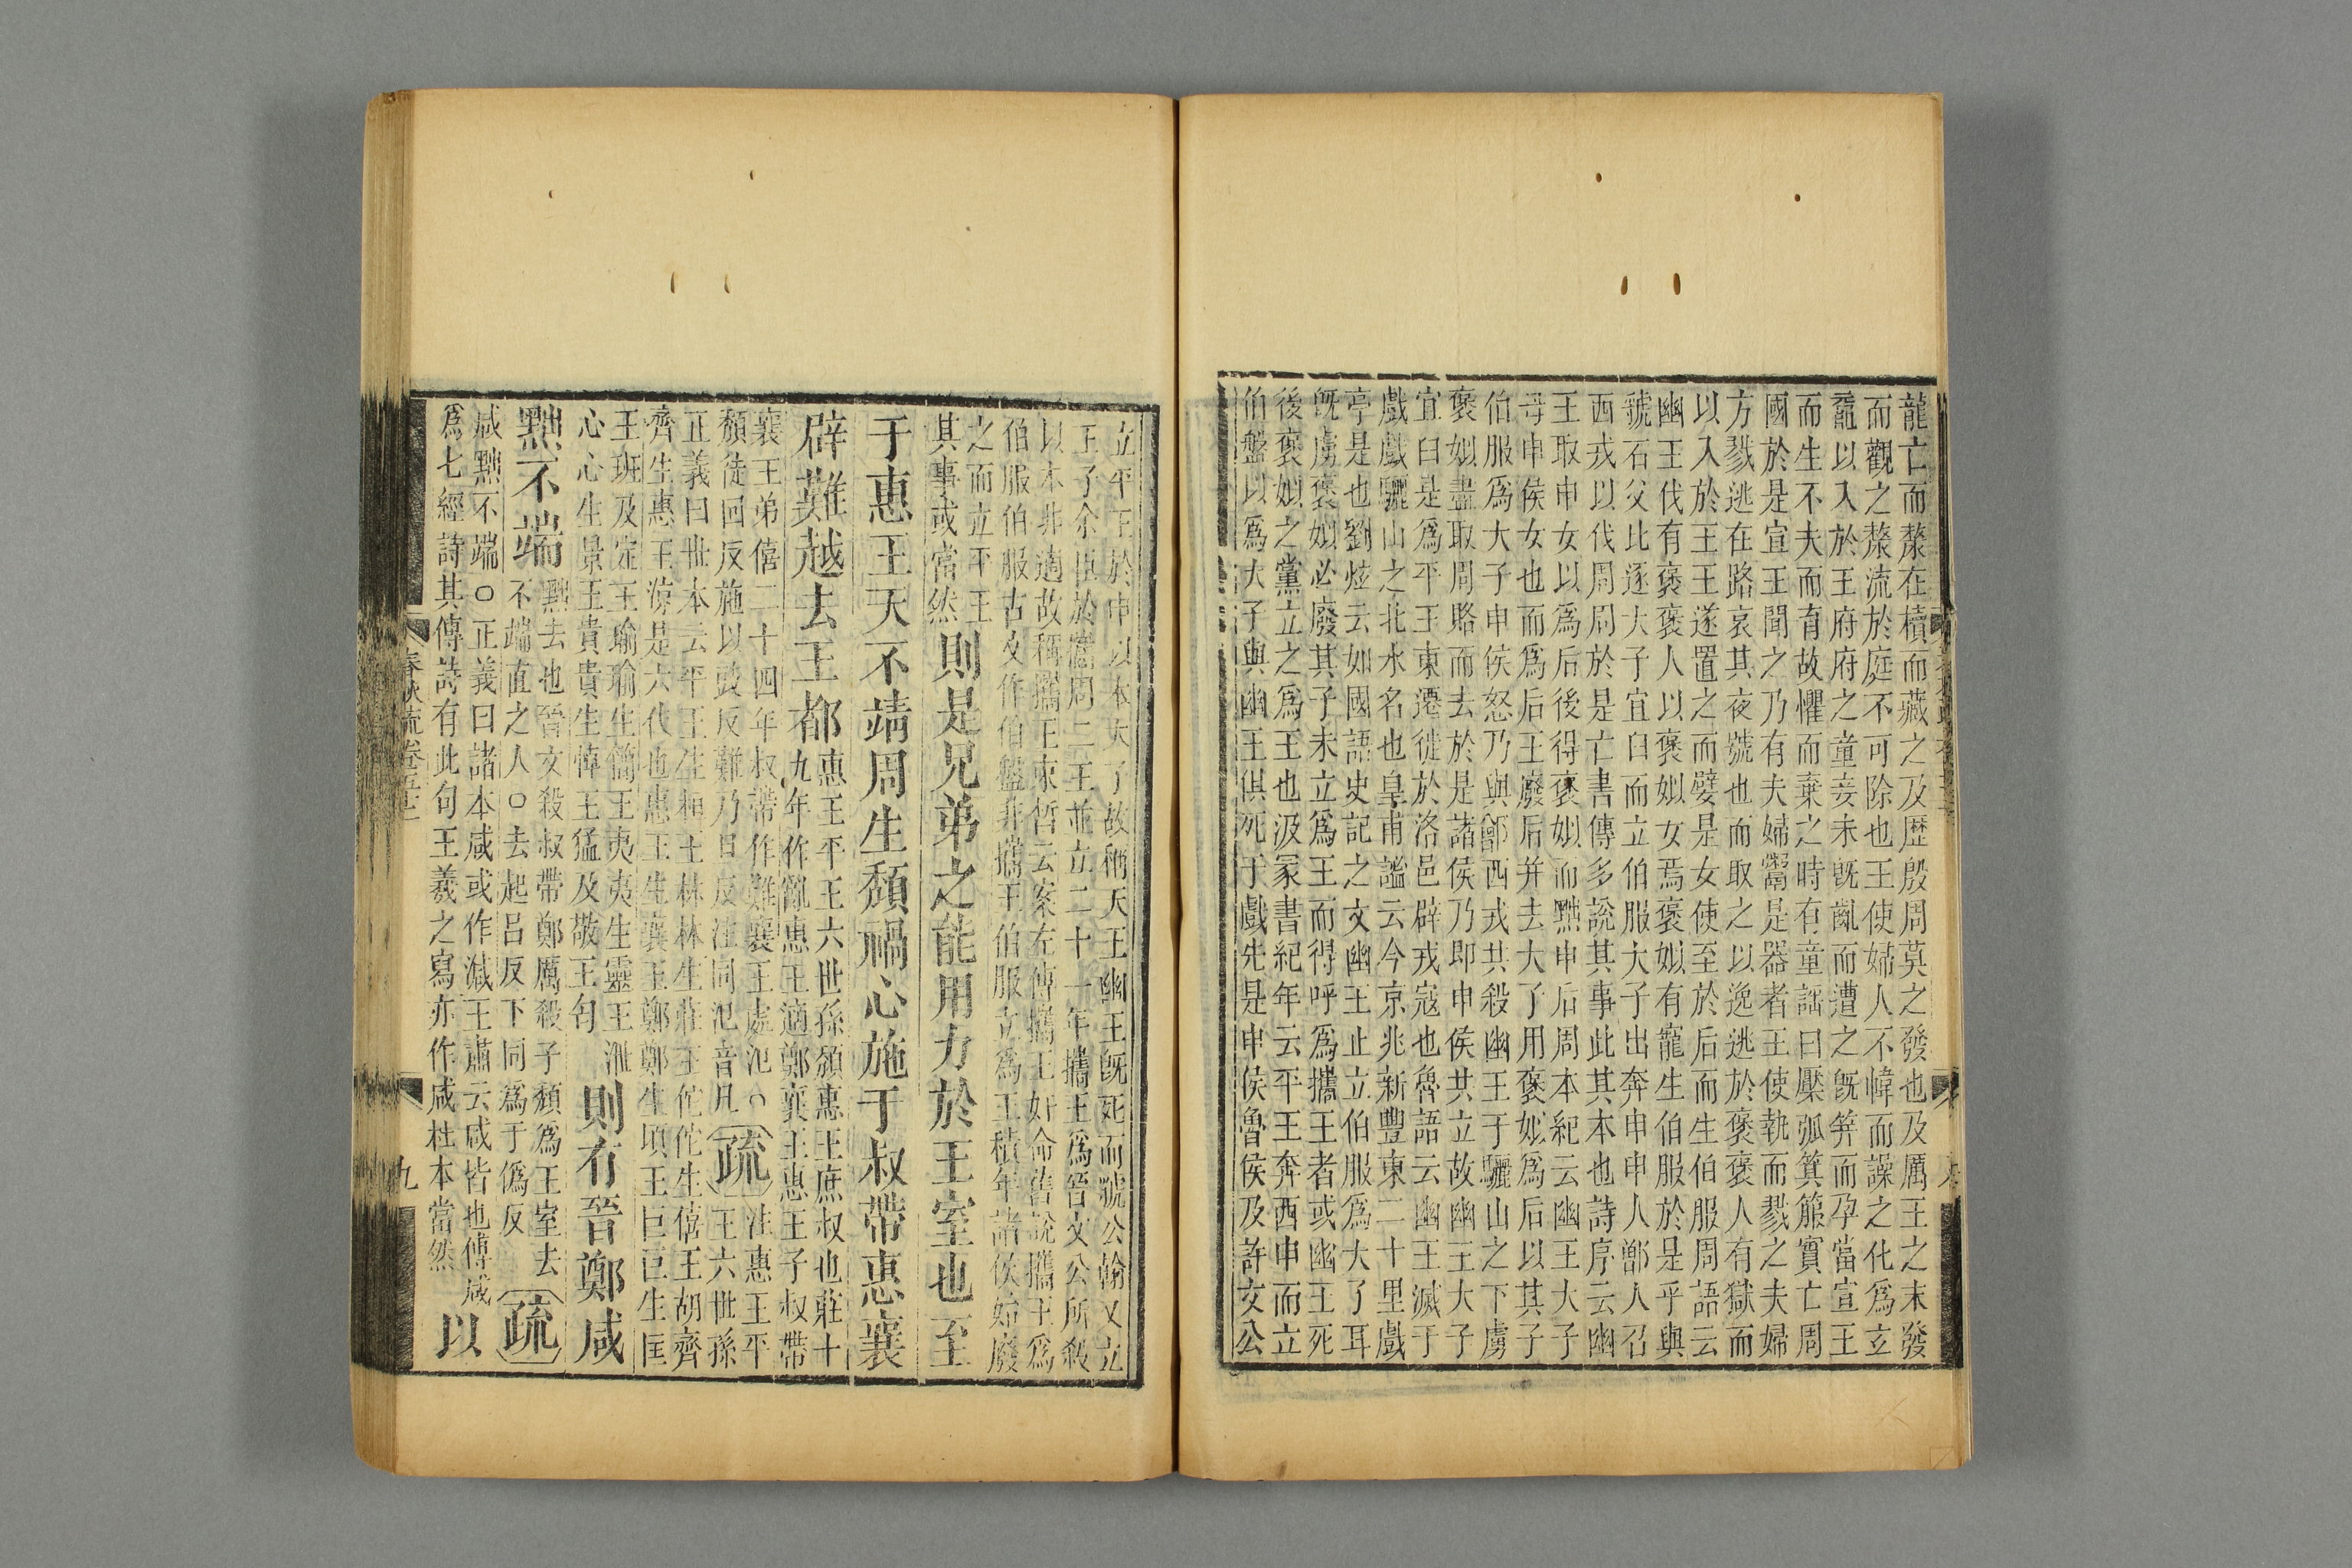 龍亡而漦在櫝而藏之及歷殷周莫之發也及厲王之末發
而觀之漦流於庭不可除也王使婦人不幃而譟之化爲玄
黿以入於王府府之童妾未既齓而遭之既笄而孕當宣王
而生不夫而育故懼而棄之時有童謡曰檿弧箕箙實亡周
國於是宣王聞之乃有夫婦鬻是器者王使執而戮之夫婦
方戮逃在路哀其夜號也而取之以逸逃於褒褒人有獄而
以入於王王遂置之而嬖是女使至於后而生伯服周語云
幽王伐有褒褒人以褒姒女焉褒姒有寵生伯服於是乎與
虢石父比逐大子宜臼而立伯服大子出奔申申人鄫人召
西戎以伐周周於是亡書傳多說其事此其本也詩序云幽
王取申女以爲后後得褒姒而黜申后周本紀云幽王大子
母申侯女也而爲后王廢后并去大子用褒姒爲后以其子
伯服爲大子申侯怒乃與鄫西戎共殺幽王于驪山之下虜
褒姒盡取周賂而去於是諸侯乃即申侯共立故幽王大子
宜臼是爲平王東遷徙於洛邑辟戎寇也魯語云幽王滅于
戲戲驪山之北水名也皇甫謐云今京兆新豐東二十里戲
亭是也劉炫云如國語史記之文幽王止立伯服爲大子耳
既虜褒姒必廢其子未立爲王而得呼爲攜王者或幽王死
後褒姒之黨立之爲王也汲冢書紀年云平王奔西申而立
伯盤以爲大子與幽王俱死于戲先是申侯魯侯及許文公
立平王於申以本大子故稱天王幽王既死而虢公翰又立
王子余臣於攜周二王並立二十一年攜王爲晉文公所殺
以本非適故稱攜王束晳云案左傳攜王奸命舊說攜王爲
伯服伯服古文作伯盤非攜王伯服立爲王積年諸侯始廢
之而立平王
其事或當然
則是兄弟之能用力於王室也至
于惠王天不靖周生頹禍心施于叔帶惠襄
辟難越去王都
惠王平王六世孫頹惠王庶叔也莊十
九年作亂惠王適鄭襄王惠王子叔帶
襄王弟僖二十四年叔帶作難襄王處氾○
頹徒回反施以豉反難乃旦反注同氾音凡
疏
注惠王平
王六世孫
正義曰世本云平王生桓王林林生莊王佗佗生僖王胡齊
齊生惠王涼是六代也惠王生襄王鄭鄭生頃王巨巨生匡
王班及定王瑜瑜生簡王夷夷生靈王泄
心心生景王貴貴生悼王猛及敬王匄
則有晉鄭咸
黜不端
黜去也晉文殺叔帶鄭厲殺子頹爲王室去
不端直之人○去起呂反下同爲于僞反
疏
咸黜不端○正義曰諸本咸或作減王肅云咸皆也傅咸
爲七經詩其傳詩有此句王羲之寫亦作咸杜本當然
以
春秋疏卷五十二
九